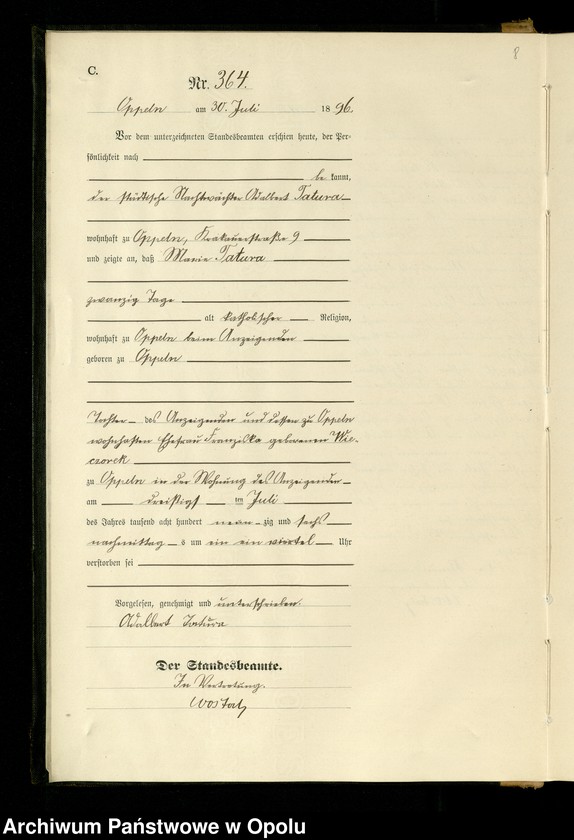 8
C.
Nr. 364.
Oppeln am 30. Juli 1896.
Vor dem unterzeichneten Standesbeamten erschien heute, der Per-
sönlichkeit nach
be kannt,
der städtische Nachtwächter Adalbert Tatura
wohnhaft zu Oppeln, Krakauerstraße 9
und zeigte an, daß Marie Tatura
zwanzig Tage
alt katholischer Religion,
wohnhaft zu Oppeln beim Anzeigenden
geboren zu Oppeln
Tochter des Anzeigenden und dessen zu Oppeln
wohnhaften Ehefrau Franziska geborenen Wie-
czorek
zu Oppeln in der Wohnung des Anzeigenden
am dreißigsten Juli
des Jahres tausend acht hundert neunzig und sechs
nachmittags um ein ein viertel Uhr
verstorben sei
Vorgelesen, genehmigt und unterschrieben.
Adalbert Tatura
Der Standesbeamte.
In Vertretung.
Archiwum Państwowe w Opolu